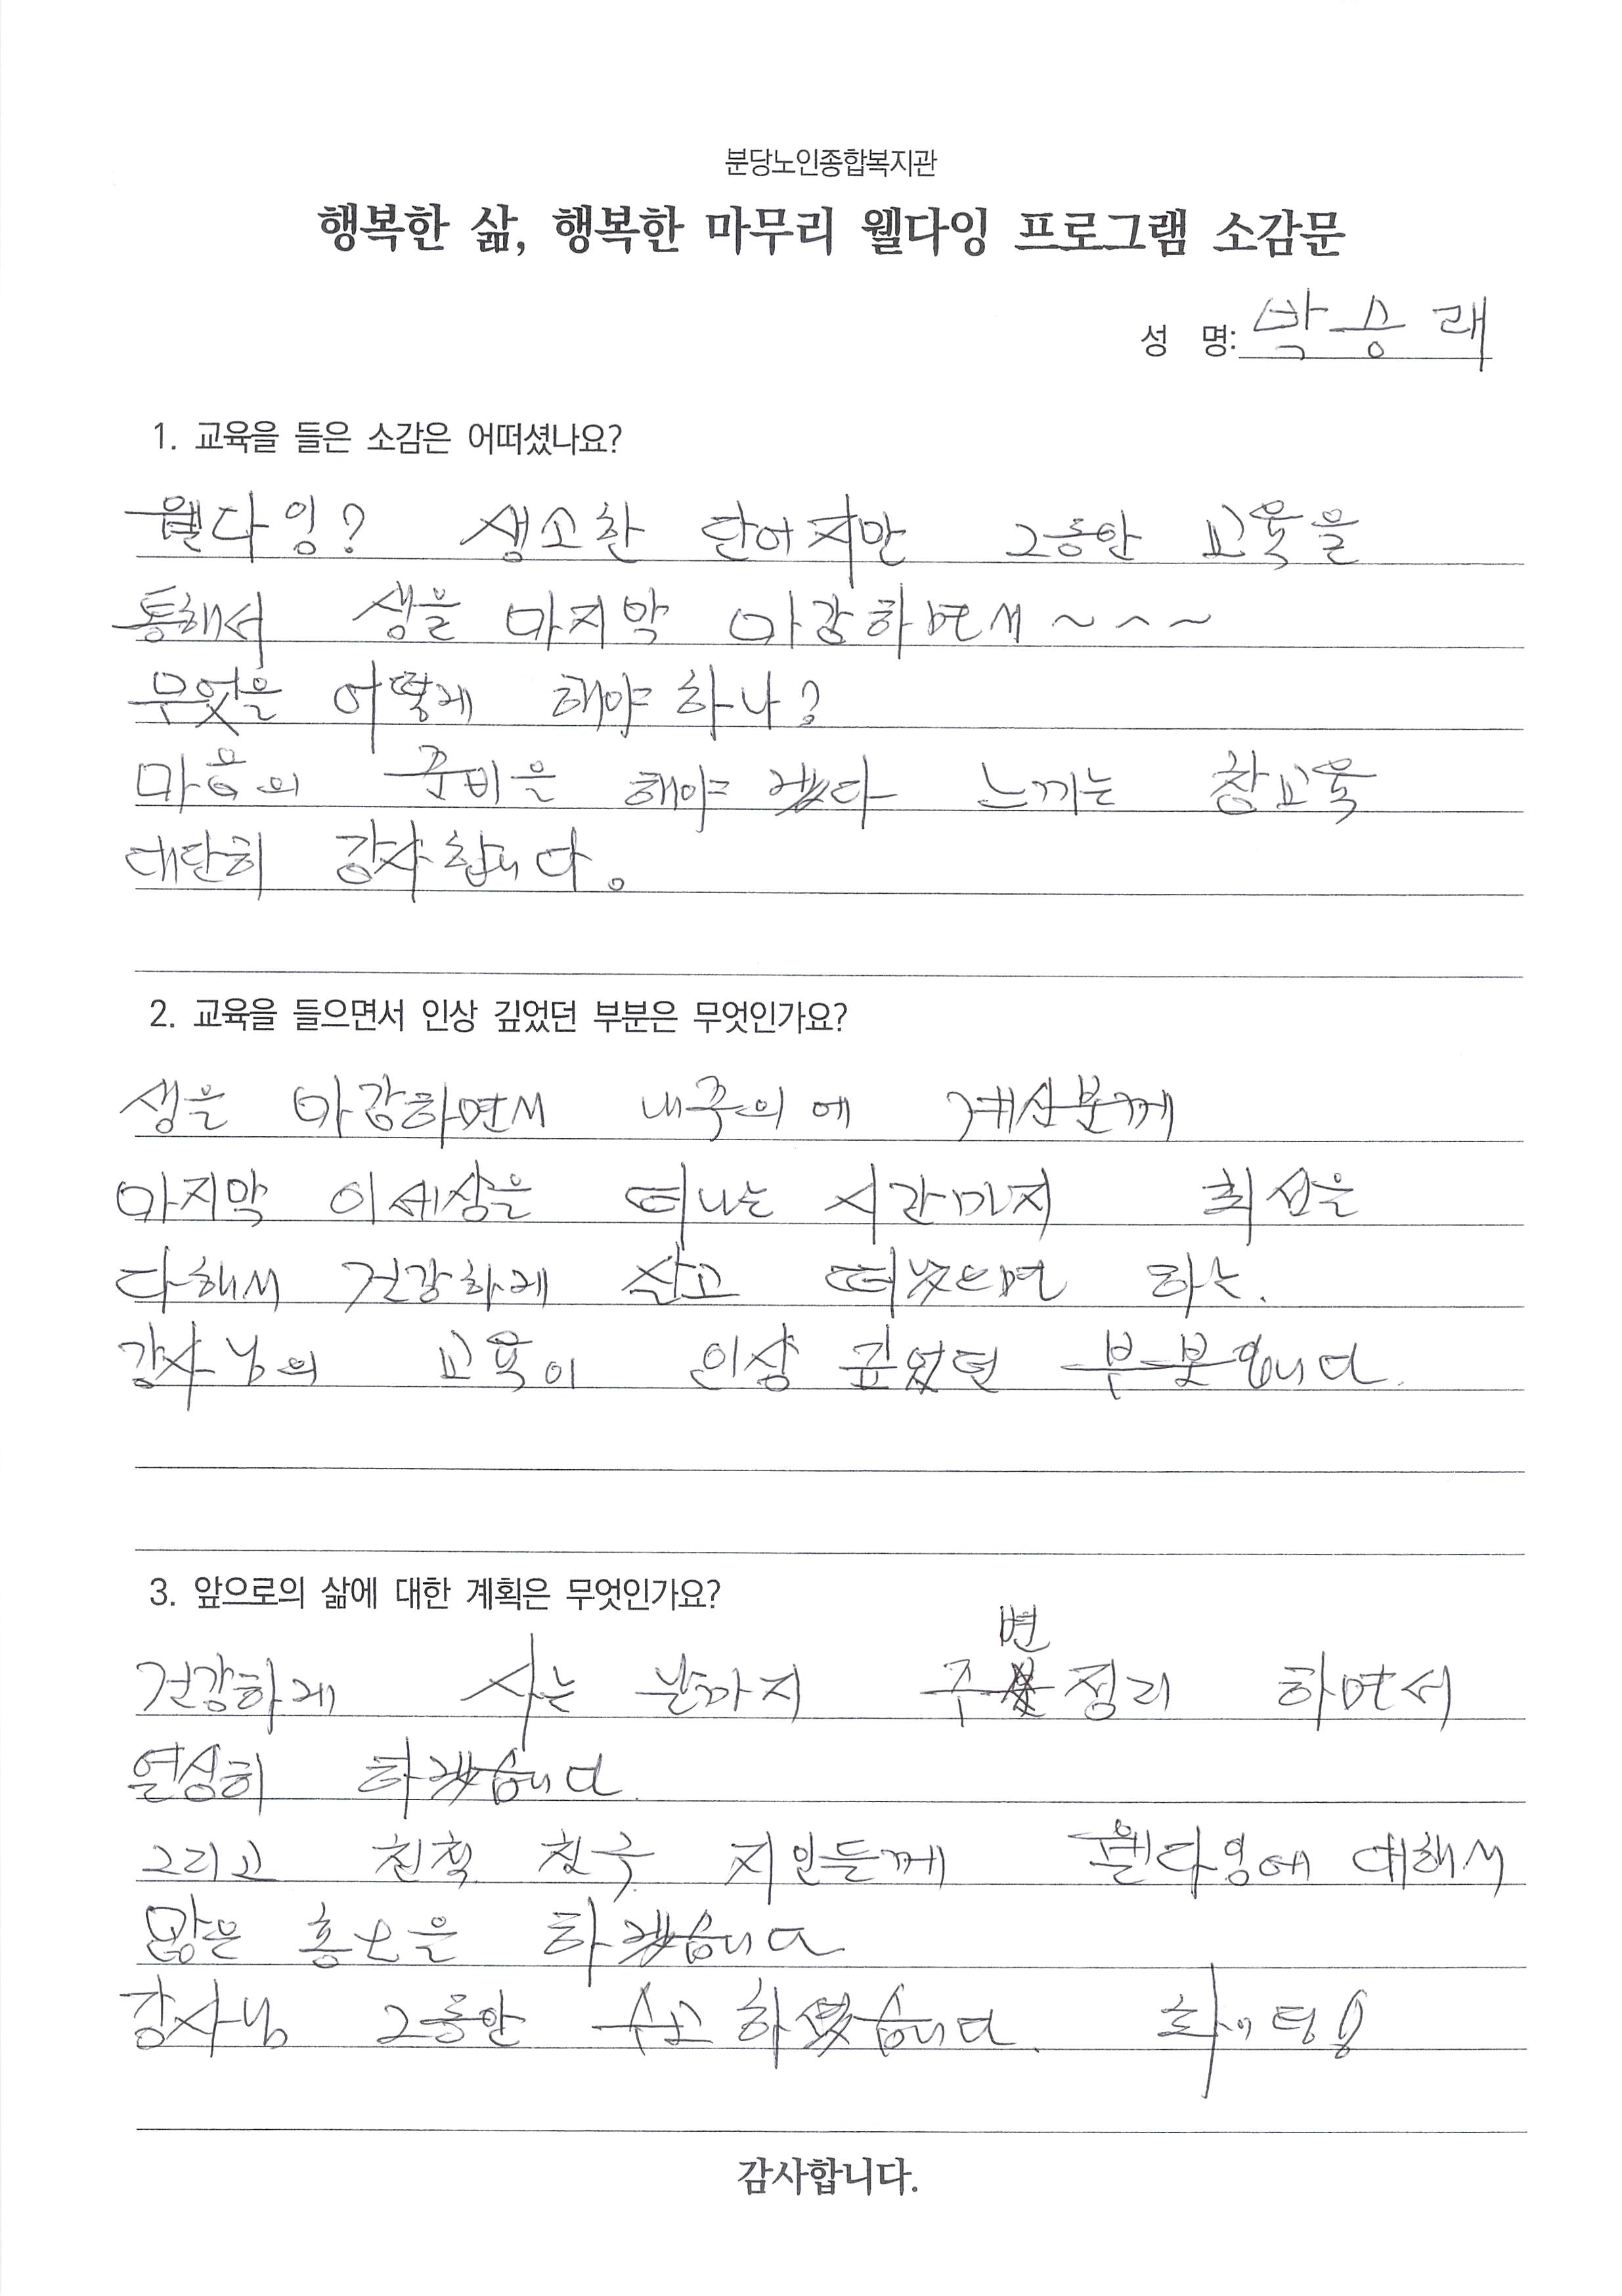 분당노인종합복지관
행복한 삶, 행복한 마무리 웰다잉 프로그램 소감문
성 명: 박승래
1. 교육을 들은 소감은 어떠셨나요?
웰다잉? 생소한 단어지만 그동안 교육을
통해서 생을 마지막 마감하면서~~~
무엇을 어떻게 해야 하나?
마음의 준비을 해야 겠다 느끼는 참교육
대단히 감사합니다.
2. 교육을 들으면서 인상 깊었던 부분은 무엇인가요?
생을 마감하면서 내주위에 계신분께
마지막 이세상을 떠나는 시간까지 최선을
다해서 건강하게 살고 떠났으면 하는.
강사님의 교육이 인상 깊었던 부분입니다.
3. 앞으로의 삶에 대한 계획은 무엇인가요?
건강하게 사는 날까지 주변정리 하면서
열심히 하겠습니다.
그리고 친척 친구 지인들께 웰다잉에 대해서
많은 홍보을 하겠습니다
강사님 그동안 수고하였습니다. 화이팅!
감사합니다.